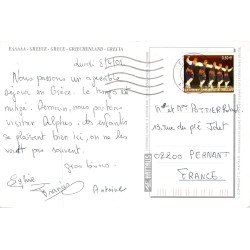 ΕΛΛΑΔΑ - GREECE - GRECE - GRIECHENLAND - GRECIA
Lundi
Nous passons un agréable
séjour en Grèce. Le temps est
mitigé. Demain, nous partons
visiter Delphes. Les enfants
se plaisent bien ici, on ne les
voit pas souvent.
Gros bisous.
Sylvie
Francis
Antoine
Mr et Mme POTTIER
15, rue du pré Jolet
02200 PERNANT
FRANCE